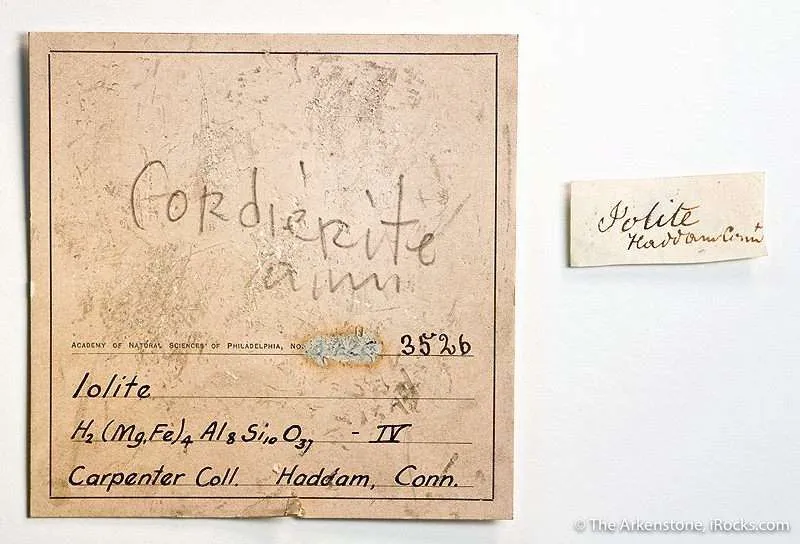 Cordiérite
ACADEMY OF NATURAL SCIENCES OF PHILADELPHIA, NO. 3526
Iolite
H₂(Mg,Fe)₄Al₈Si₁₀O₃₇ - IV
Carpenter Coll. Haddam, Conn.
Iolite
Haddam Conn
© The Arkenstone, iRocks.com